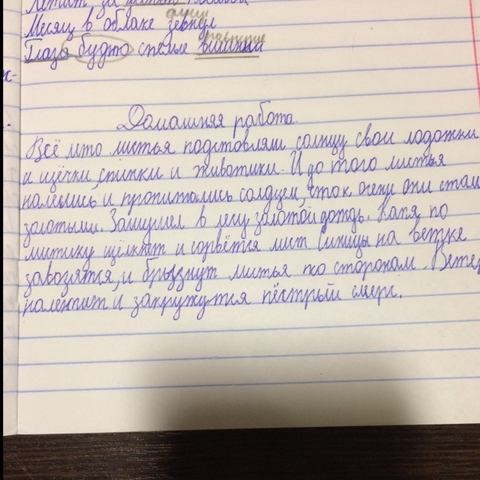 Летит за
Месяц в облаке зевнул
Глаза будто спелые вишни
Домашняя работа.
Всё лето листья подставляли солнцу свои ладошки
и щёчки, спинки и животики. И до того листья
налились и пропитались солнцем, что к осени они стали
золотыми. Зашумел в лесу золотой дождь. Капля по
листику щёлкнет и сорвётся лист. Синицы на ветке
завозятся, и брызнут листья по сторонам. Ветер
налетит и закружится пёстрый смерч.